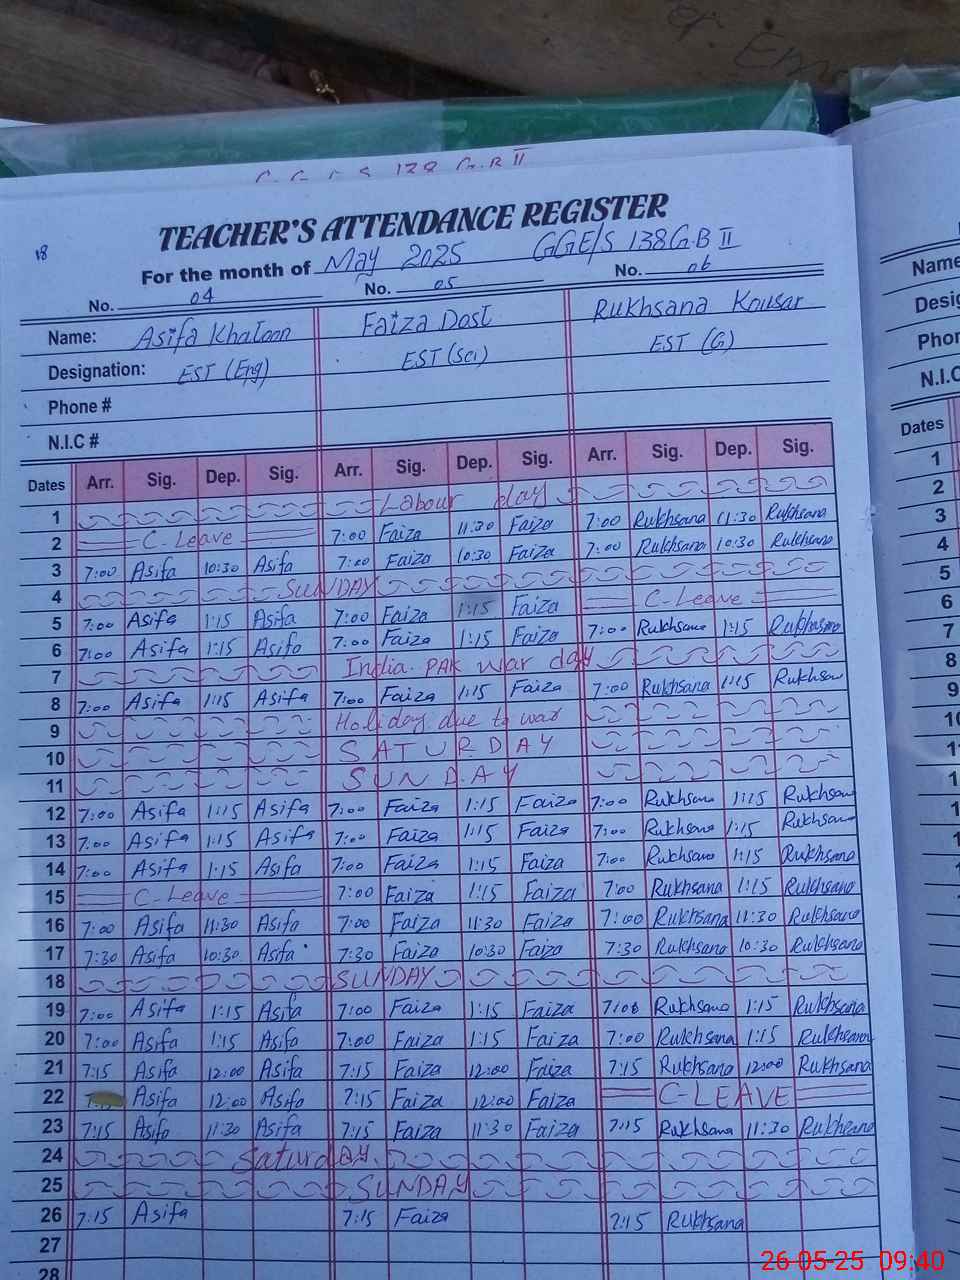 TEACHER'S ATTENDANCE REGISTER
18
For the month of May 2025 GGE/S 138 G.B II
No. 04 No. 05 No. 06
Name: Asifa Khatoon Faiza Dost Rukhsana Kousar
Designation: EST (Eng) EST (Sci) EST (G)
Phone #
N.I.C #
Dates Arr. Sig. Dep. Sig. Arr. Sig. Dep. Sig. Arr. Sig. Dep. Sig.
1 Labour day
2 C-Leave 7:00 Faiza 11:30 Faiza 7:00 Rukhsana 11:30 Rukhsana
3 7:00 Asifa 10:30 Asifa 7:00 Faiza 10:30 Faiza 7:00 Rukhsana 10:30 Rukhsana
4 SUNDAY
5 7:00 Asifa 1:15 Asifa 7:00 Faiza 1:15 Faiza C-Leave
6 7:00 Asifa 1:15 Asifa 7:00 Faiza 1:15 Faiza 7:00 Rukhsana 1:15 Rukhsana
7 India PAK war day
8 7:00 Asifa 1:15 Asifa 7:00 Faiza 1:15 Faiza 7:00 Rukhsana 1:15 Rukhsan
9 Holiday due to war
10 SATURDAY
11 SUNDAY
12 7:00 Asifa 1:15 Asifa 7:00 Faiza 1:15 Faiza 7:00 Rukhsana 1:15 Rukhsana
13 7:00 Asifa 1:15 Asifa 7:00 Faiza 1:15 Faiza 7:00 Rukhsana 1:15 Rukhsana
14 7:00 Asifa 1:15 Asifa 7:00 Faiza 1:15 Faiza 7:00 Rukhsana 1:15 Rukhsana
15 C-Leave 7:00 Faiza 1:15 Faiza 7:00 Rukhsana 1:15 Rukhsana
16 7:00 Asifa 11:30 Asifa 7:00 Faiza 11:30 Faiza 7:00 Rukhsana 11:30 Rukhsana
17 7:30 Asifa 10:30 Asifa 7:30 Faiza 10:30 Faiza 7:30 Rukhsana 10:30 Rukhsana
18 SUNDAY
19 7:00 Asifa 1:15 Asifa 7:00 Faiza 1:15 Faiza 7:00 Rukhsana 1:15 Rukhsana
20 7:00 Asifa 1:15 Asifa 7:00 Faiza 1:15 Faiza 7:00 Rukhsana 1:15 Rukhsana
21 7:15 Asifa 12:00 Asifa 7:15 Faiza 12:00 Faiza 7:15 Rukhsana 12:00 Rukhsana
22 Asifa 12:00 Asifa 7:15 Faiza 12:00 Faiza C-LEAVE
23 7:15 Asifa 11:30 Asifa 7:15 Faiza 11:30 Faiza 7:15 Rukhsana 11:30 Rukhsana
24 Saturday
25 SUNDAY
26 7:15 Asifa 7:15 Faiza 7:15 Rukhsana
27
28
Name
Phon
N.I.C
Dates
1
2
3
4
5
6
7
8
9
26-05-25 09:40